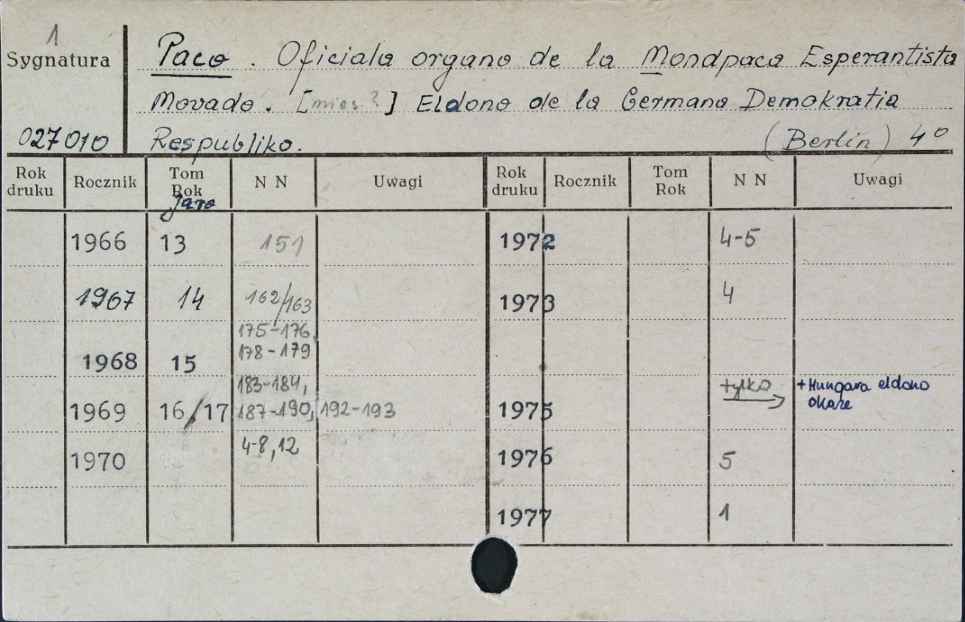 1
Sygnatura
027010
Paco. Oficiala organo de la Mondpaca Esperantista
Movado. [mies?] Eldono de la Germana Demokratia
Respubliko. (Berlin) 4°
Rok druku Rocznik Tom Rok Jaro N N Uwagi Rok druku Rocznik Tom Rok N N Uwagi
1966 13 151 1972 4-5
1967 14 162/163 1973 4
175-176,
1968 15 178-179
183-184, tylko → + Hungara eldono
1969 16/17 187-190, 192-193 1975
1970 4-8, 12 1976 5
1977 1